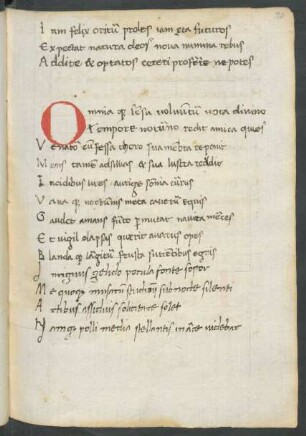 Iam felix oritur proles iam leta futuros
Expectat natura deos noua numina rebus
Addite & optatos ceteri proferte nepotes
Omnia que sensu voluuntur uota diurno
Tempore nocturno redit amica quies
Venator defessa thoro cum membra reponit
Mens tamen ad siluas & sua lustra reddit
Iudicibus lites aurige somnia currus
Vana que nocturnis meta cauetur equis
Gaudet amans furto permutat nauita merces
Et uigil elapsas querit auarus opes
Blanda que largitur frustra sitientibus egris
Irriguus gelido pocula fonte sopor
Me quoque musarum studium sub nocte silenti
Artibus assiduis solicitare solet
Namque polli media stellantis in arce uidebar